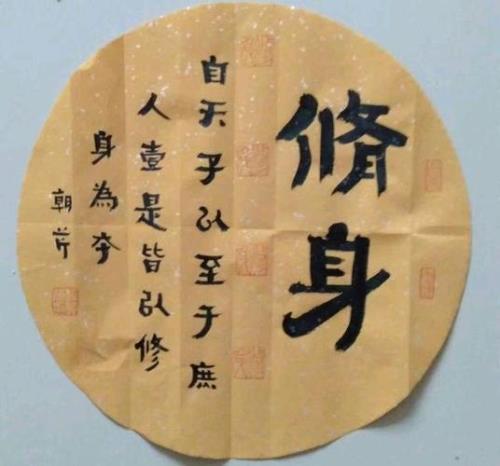 脩身
自天子以至于庶
人壹是皆以修
身為夲
朝芹